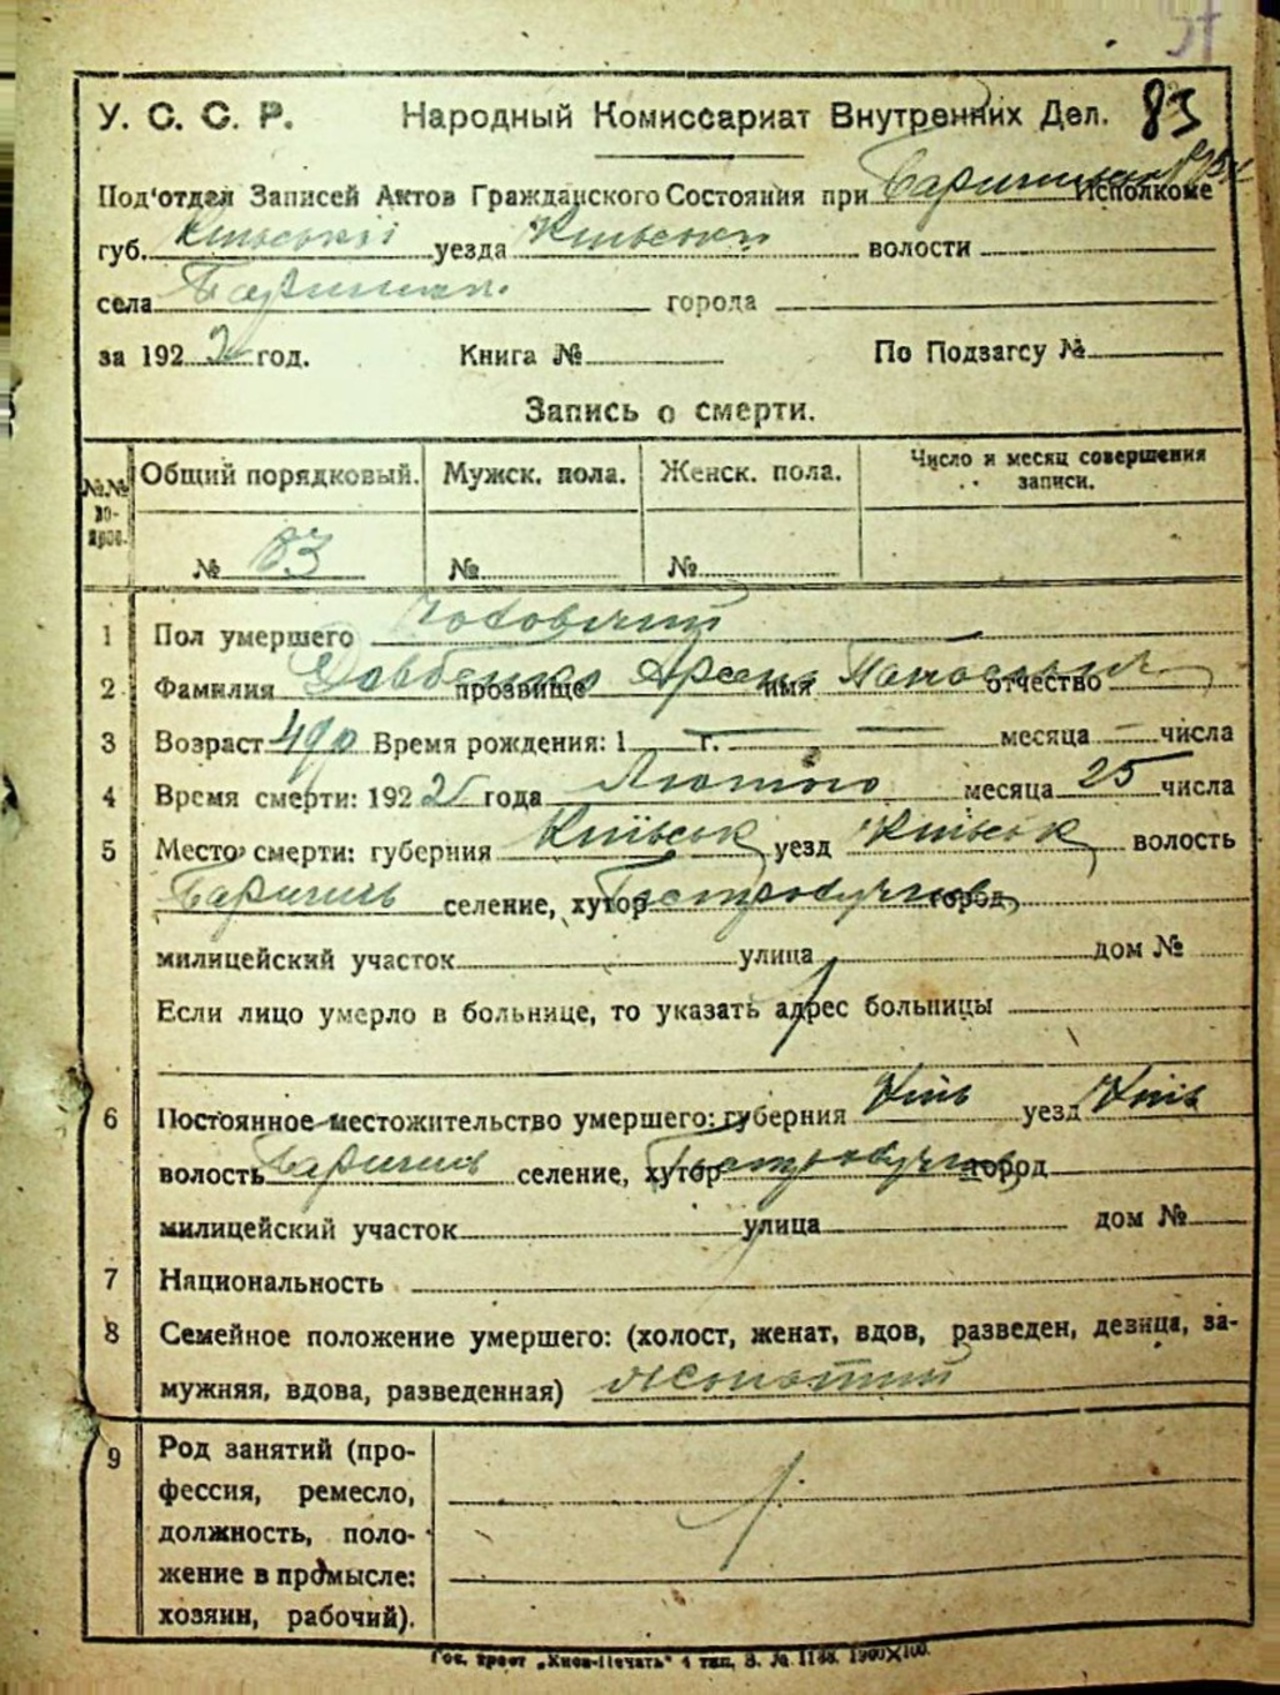 У. С. С. Р. Народный Комиссариат Внутренних Дел. 83
Под'отдел Записей Актов Гражданского Состояния при Исполкоме
губ. Київської уезда Київськ волости
села города
за 192 2 год. Книга № По Подзагсу №
Запись о смерти.
№№ вопрос. Общий порядковый. Мужск. пола. Женск. пола. Число и месяц совершения записи.
№ 83 № №
1 Пол умершего Чоловічий
2 Фамилия Довбенко прозвище Арсень имя Панасович отчество
3 Возраст 49 р Время рождения: 1 г. месяца числа
4 Время смерти: 192 2 года Лютого месяца 25 числа
5 Место смерти: губерния Київськ уезд Київськ волость
селение, хутор город
милицейский участок улица дом №
Если лицо умерло в больнице, то указать адрес больницы
6 Постоянное местожительство умершего: губерния Київ уезд Київ
волость селение, хутор город
милицейский участок улица дом №
7 Национальность
8 Семейное положение умершего: (холост, женат, вдов, разведен, девица, за-
мужняя, вдова, разведенная) жонатий
9 Род занятий (про-
фессия, ремесло,
должность, поло-
жение в промысле:
хозяин, рабочий).
Гос. трест „Киев-Печать" 4 тип. З. № 1188. 1900×100.